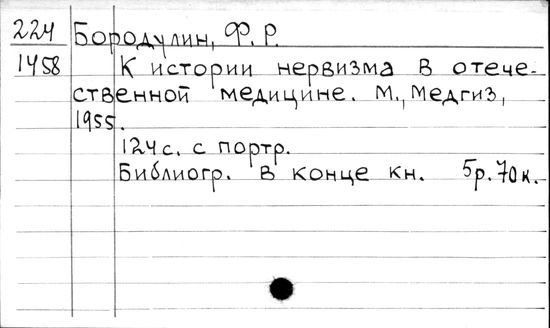 224 Бородулин, Ф. Р.
1458 К истории нервизма в отече-
ственной медицине. М., Медгиз,
1955.
124 с. с портр.
Библиогр. в конце кн. 5р. 70к.